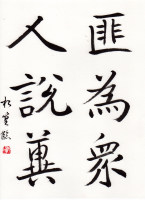 匪為眾
人說冀